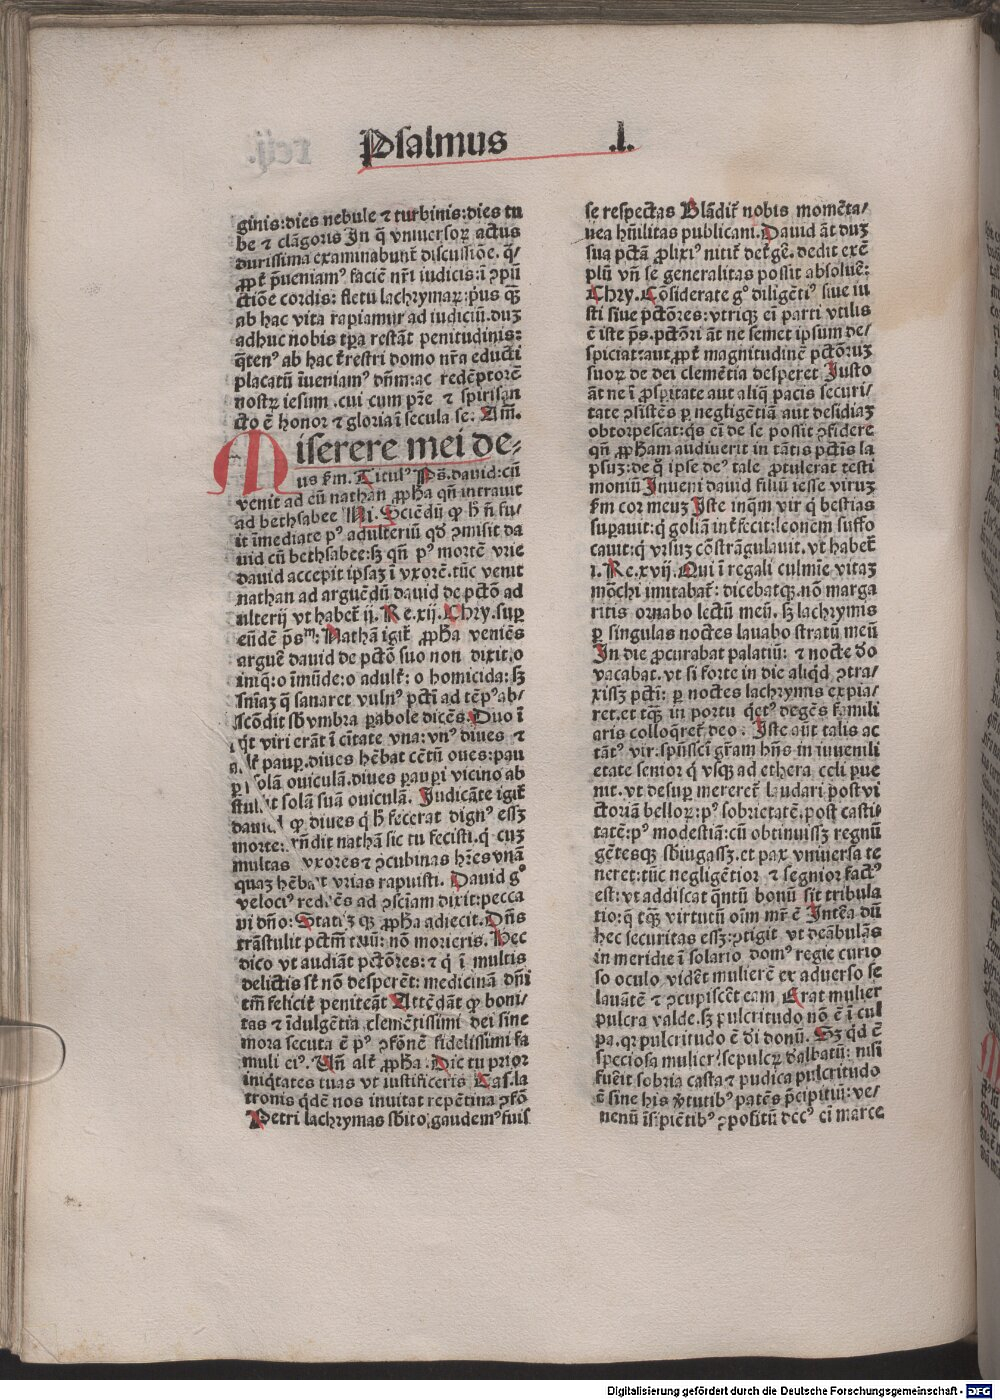 Psalmus .l.
ginis:dies nebule ⁊ turbinis:dies tu
be ⁊ clāgoris In q̄ vniuersoꝝ actus
durissima examinabunt᷑ discussiōe. q̄/
ꝓpt̄ p̄ueniamꝰ faciē nr̄i iudicis:ī ꝯpū
ctiōe cordis: fletu lachrymaꝝ:pꝰus qꝫ̄
ab hac vita rapiamur ad iudiciū.duꝫ
adhuc nobis tp̄a restāt penitudinis:
q̄tenꝰ ab hac t̄restri domo nr̄a educti
placatū īueniamꝰ dn̄m:ac redēptorē
nostꝝ iesum.cui cum pr̄e ⁊ spirisan
cto ē honor ⁊ gloria ī secula se. Am̄.
Miserere mei de-
us ẜm. Titulꝰ Ps̄.dauid:cū
venit ad eū nathan ꝓp̄ha qn̄ intrauit
ad bethsabee Ni. Sciēdū ꝙ h̄ n̄ fu/
it īmediate pꝰ adulteriū qd̄ ꝯmisit da
uid cū bethsabee:sꝫ qn̄ pꝰ mortē vrie
dauid accepit ipsaꝫ ī vxorē.tūc venit
nathan ad arguēdū dauid de pctō ad
ulterij vt habet᷑ ij. Re.xij. Chry.suꝑ
eūdē ps̄m: Nathā igit᷑ ꝓp̄ha veniēs
arguē dauid de pctō suo non dixit.o
iniq̄:o īmūde:o adult̄: o homicida:sꝫ
sn̄iaꝫ q̄ sanaret vulnꝰ pctī ad tēpꝰ ab/
scōdit sb̄ vmbra ꝑabole dicēs. Duo ī
q̇t viri erāt ī ciuitate vna:vnꝰ diues ⁊
alt̄ pauꝑ.diues hēbat cētū oues:pau
solā ouiculā.diues pauꝑi vicino ab
stulit solā suā ouiculā. Iudicāte igit᷑
dauid ꝙ diues q̇ h̄ fecerat dignꝰ essꝫ
morte: rn̄dit nathā sic tu fecisti.q̇ cuꝫ
multas vxores ⁊ ꝯcubinas hr̄es vnā
quaꝫ hēbat vrias rapuisti. Dauid gͦ
velociꝰ rediēs ad ꝯsciam dixit:pecca
ui dn̄o: Statiꝫ qꝫ ꝓp̄ha adiecit. Dn̄s
trāstulit pctm̄ tuū: nō morieris. Hec
dico vt audiāt pctōres:⁊ q̇ ī multis
delictis st̄ nō desperēt: medicinā dn̄i
tm̄ feliciṫ peniteāt Attēdāt ꝙ boni/
tas ⁊ īdulgētia clemētissimi dei sine
mora secuta ē pꝰ ꝯfōnē fidelissimi fa
muli eiꝰ. Vn̄ alt̄ ꝓp̄ha. Dic tu prior
iniq̇tates tuas vt iustificeris Cas.la
tronis q̇dē nos inuitat repētina ꝯfō.
Petri lachrymas sb̄ito gaudemꝰ fuis
se respectas Blādit᷑ nobis momēta/
nea hūilitas publicani. Dauid āt duꝫ
sua pctā ꝓlixiꝰ nitit᷑ det̄gē. dedit exē
plū vn̄ se generalitas possit absoluē:
Chry. Cōsiderate gͦ diligētiꝰ siue iu
sti siue pctōres:vtriqꝫ ei parti vtilis
ē iste ps̄.pctōri āt ne semet ipsum de/
spiciat:aut ꝓpt̄ magnitudinē pctōruꝫ
suoꝝ de dei clemētia desperet Iusto
āt ne ī ꝓspitate aut aliq̄ pacis securi/
tate ꝯsistēs ꝑ negligētiā aut desidiaꝫ
obtorpescat:q̇s ei de se possit ꝯfidere
qn̄ ꝓp̄ham audiuerit in tātis pctīs la
psuꝫ:de q̇ ipse deꝰ tale ꝓtulerat testi
moniū Inueni dauid filiū iesse viruꝫ
ẜm cor meuꝫ Iste inq̄m vir q̇ bestias
suꝑauit:q̇ goliā int̄fecit:leonem suffo
cauit:q̇ vrsuꝫ cōstrāgulauit.vt habet᷑
1. Re.xvij. Qui ī regali culmīe vitaꝫ
mōchi imitabat᷑: dicebatqꝫ.nō marga
ritis ornabo lectū meū. sꝫ lachrymis
ꝑ singulas noctes lauabo stratū meū
In die ꝓcurabat palatiū: ⁊ nocte do
vacabat.vt si forte in die aliqd̄ ꝯtra/
xissꝫ pctī: ꝑ noctes lachrymis expia/
ret.et tqꝫ̄ in portu q̇etꝰ degēs famili
aris colloqret᷑ deo. Iste aūt talis ac
tātꝰ vir.spūssc̄i gr̄am hn̄s in iuuenili
etate senior q̇ vsqꝫ ad ethera celi pue
nit.vt desuꝑ mereret᷑ laudari post vi
ctoriā belloꝝ:pꝰ sobrietatē.post casti/
tatē:pꝰ modestiā:cū obtinuissꝫ regnū
gētesqꝫ sb̄iugassꝫ.et pax vniuersa te
neret:tūc negligētior ⁊ segnior factꝰ
est:vt addiscat q̄ntū bonū sit tribula
tio:q̄ tqꝫ̄ virtutū oīm mr̄ ē Intēa dū
hec securitas essꝫ:ꝯtigit vt deābulās
in meridie ī solario domꝰ regie curio
so oculo vidēt mulierē ex aduerso se
lauātē ⁊ ꝯcupiscēt eam Erat mulier
pulcra valde.sꝫ pulcritudo nō ē ī cul
pa.qꝛ pulcritudo ē dī donū. Sꝫ q̇d ē
speciosa mulier?sepulcꝝ dalbatū: nisi
fuēit sobria casta ⁊ pudica pulcritudo
ē sine his v̄tutibꝰ patēs p̄cipitiū:ve/
nenū īsipiētibꝰ ꝓpositū decꝰ ei marce
Digitalisierung gefördert durch die Deutsche Forschungsgemeinschaft - DFG